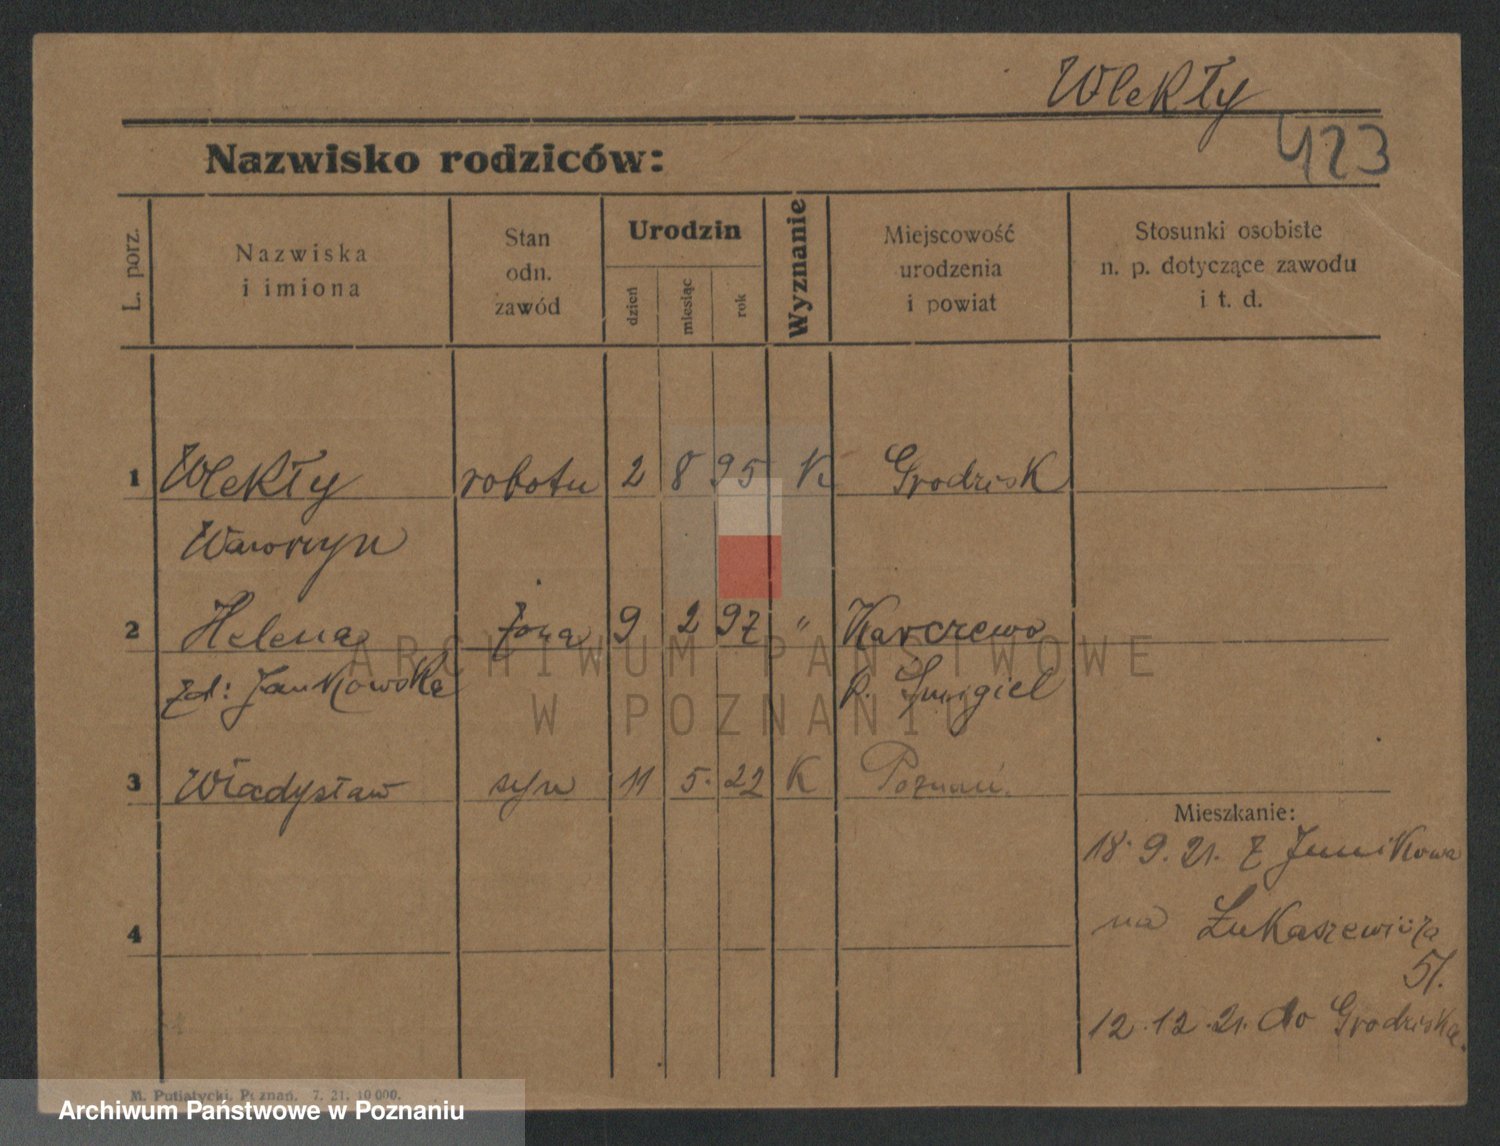 Wlekły
423
Nazwisko rodziców:
L. porz.
Nazwiska
i imiona
Stan
odn.
zawód
Urodzin
dzień
miesiąc
rok
Wyznanie
Miejscowość
urodzenia
i powiat
Stosunki osobiste
n. p. dotyczące zawodu
i t. d.
1 Wlekły robotn 2 8 95 K Grodzisk
Wawrzyn
2 Helena żona 9 2 97 " Karczewo
zd: Jankowska p. Śmigiel
3 Władysław syn 11 5. 22 K Poznań.
Mieszkanie:
18. 9. 21. z Junikowa
na Łukaszewicza
51.
4
12.12.21. do Grodziska.
M. Putiatycki, Poznań. 7. 21. 10 000.
ARCHIWUM PAŃSTWOWE
W POZNANIU
Archiwum Państwowe w Poznaniu